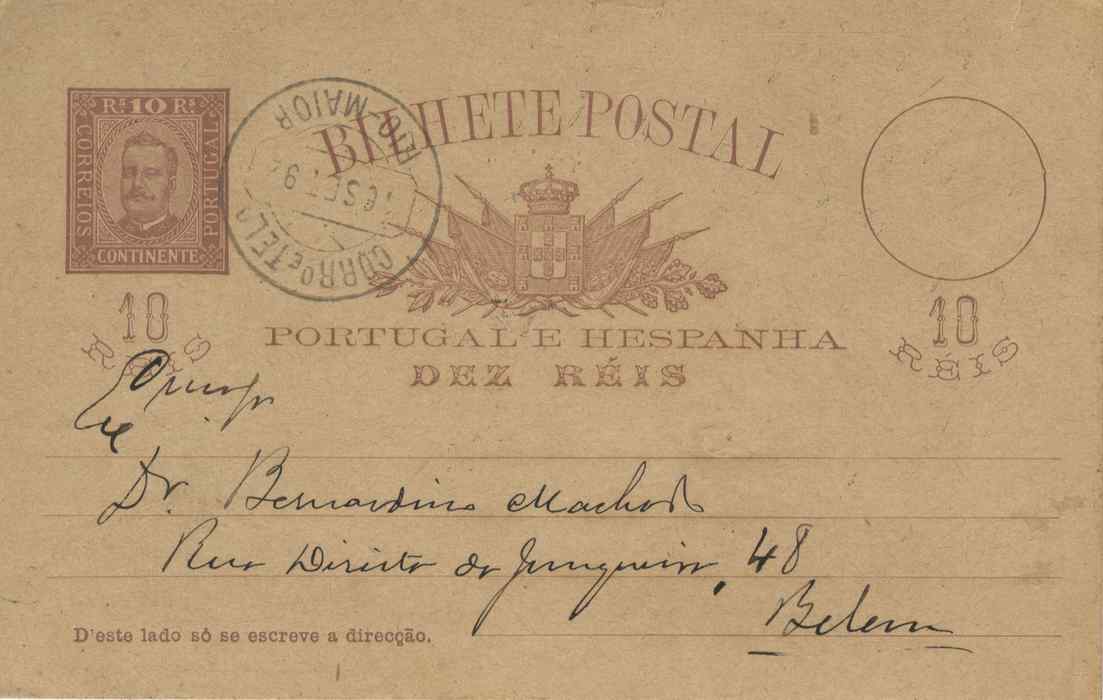 Rs 10 Rs
CORREIOS
PORTUGAL
CONTINENTE
MAIOR
CORRº E TELº
SET 9
BILHETE POSTAL
10
RÉIS
10
RÉIS
PORTUGAL E HESPANHA
DEZ RÉIS
Dr. Bernardino Machado
Rua Direita da Junqueira, 48
Belem
D'este lado só se escreve a direcção.